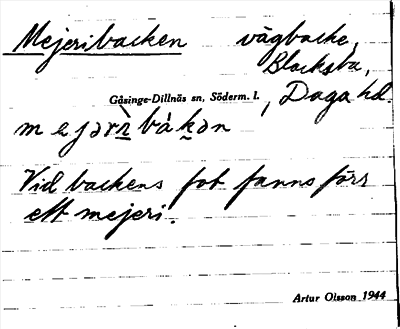 Mejeribacken vägbacke,
Blacksta,
Gåsinge-Dillnäs sn, Söderm. l., Daga hd
mejərìn̲ bák̲ən
Vid backens fot fanns förr
ett mejeri.
Artur Olsson 1944